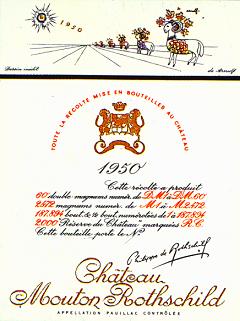 1950
Dessin inédit de Arnulf
TOUTE LA RÉCOLTE MISE EN BOUTEILLES AU CHÂTEAU
1950
Cette récolte a produit
60 double magnums numér. de D.M.1 à D.M.60
2.572 magnums numér. de M.1 à M.2.572
187.894 bout. & ½ bout. numérotées de 1 à 187.894
2000 Réserve du Château marquées R.C.
Cette bouteille porte le N°
Philippe de Rothschild
Château
Mouton Rothschild
APPELLATION PAUILLAC CONTRÔLÉE